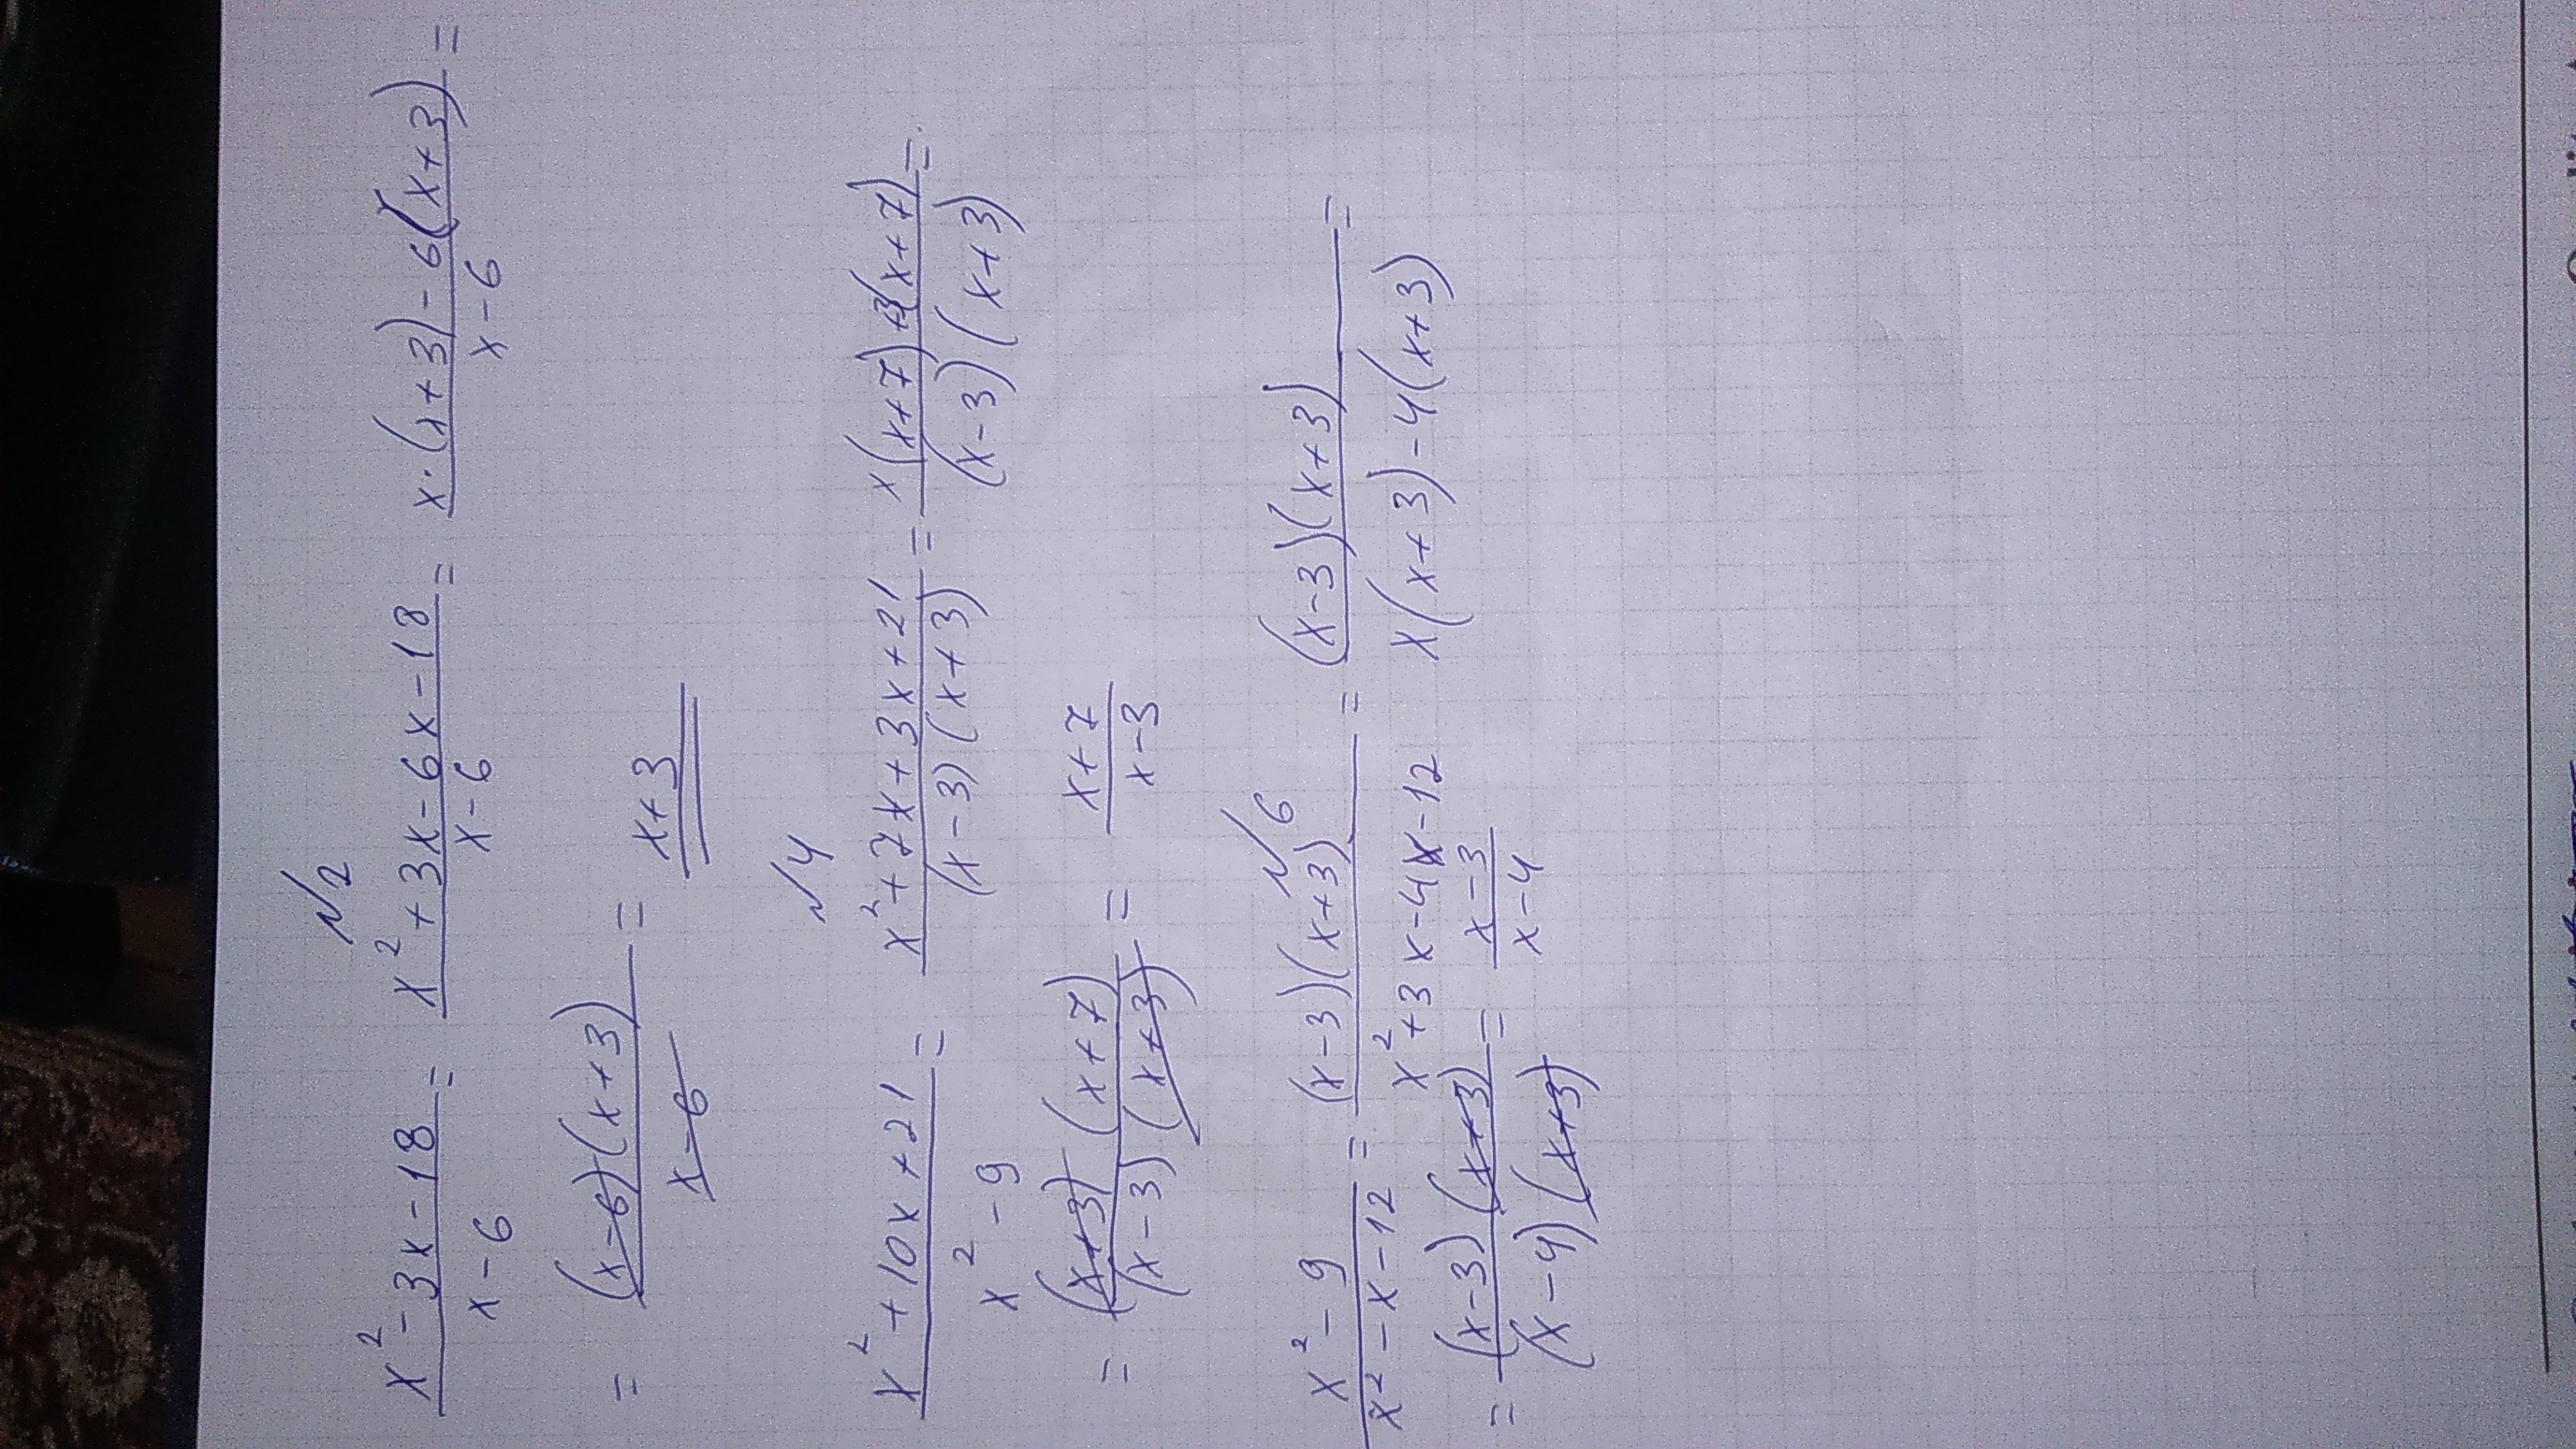 №2
x² - 3x - 18 / x - 6 = x² + 3x - 6x - 18 / x - 6 = x·(x+3) - 6(x+3) / x - 6 =
= (x-6)(x+3) / x-6 = x+3
№4
x² + 10x + 21 / x² - 9 = x² + 7x + 3x + 21 / (x-3)(x+3) = x(x+7)+3(x+7) / (x-3)(x+3) =
= (x+3)(x+7) / (x-3)(x+3) = x+7 / x-3
№6
x² - 9 / x² - x - 12 = (x-3)(x+3) / x² + 3x - 4x - 12 = (x-3)(x+3) / x(x+3) - 4(x+3) =
= (x-3)(x+3) / (x-4)(x+3) = x-3 / x-4